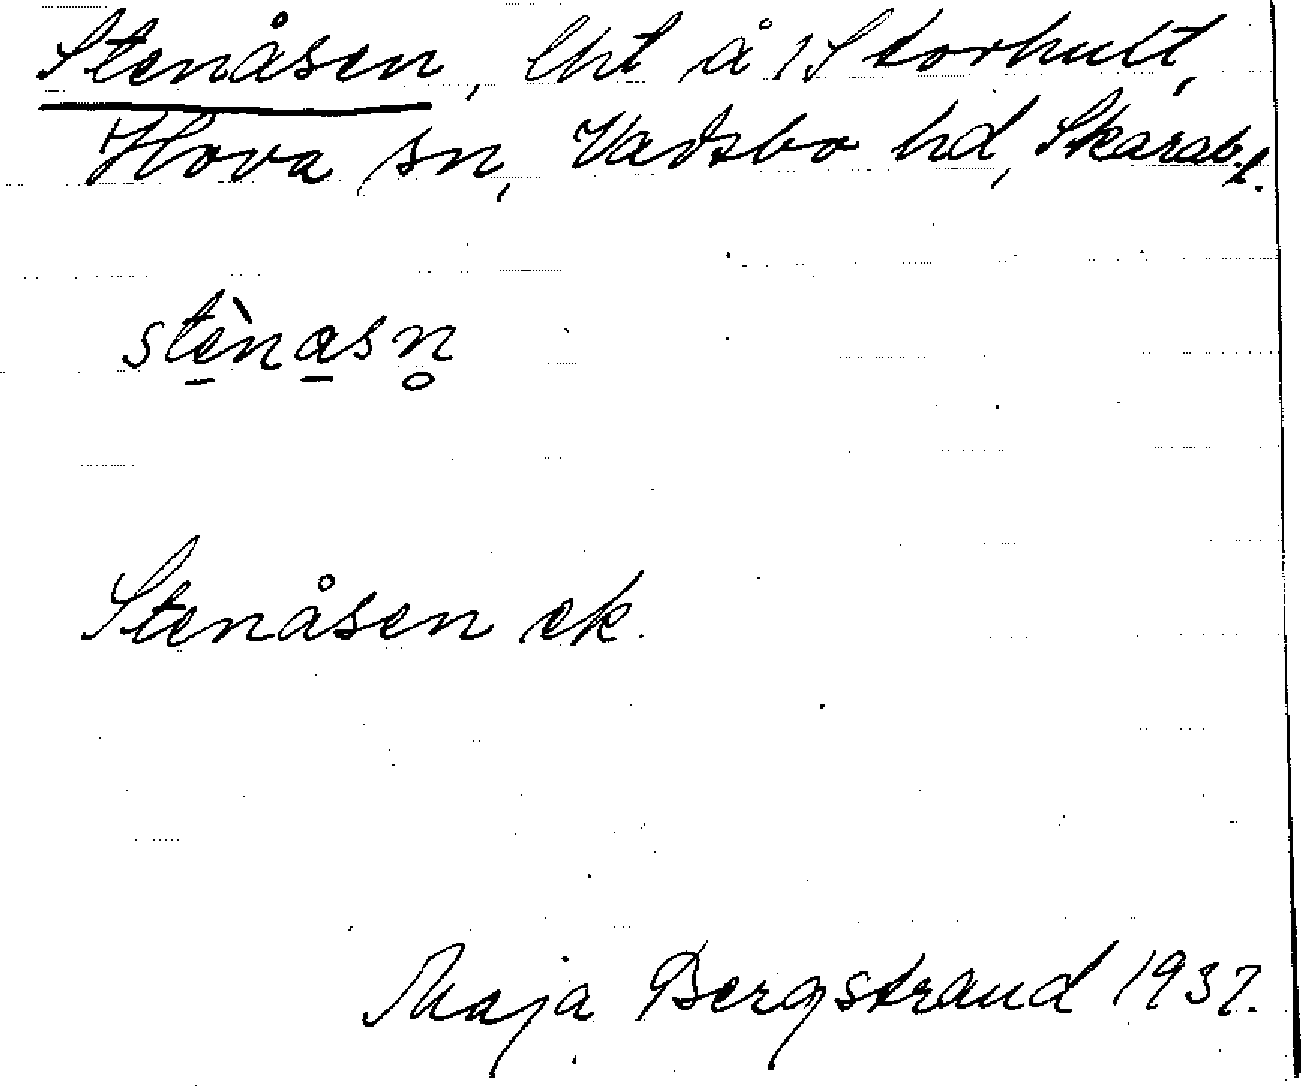 Stenåsen, lht å 1 Storhult,
Hova sn, Vadsbo hd, Skarab. l.
stènasn̥
Stenåsen ek.
Maja Bergstrand 1937.